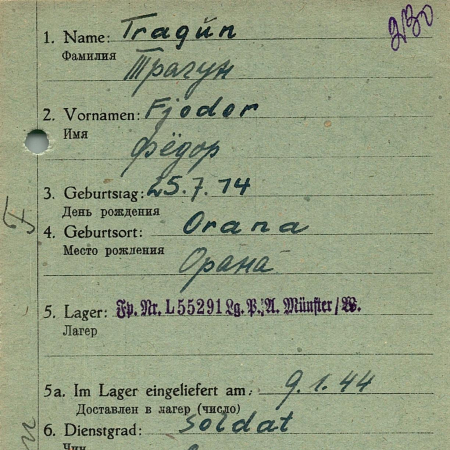 230
1. Name: Tragun
Фамилия
Трагун
2. Vornamen: Fjodor
Имя
Фёдор
3. Geburtstag: 25.7.14
День рождения
4. Geburtsort: Orana
Место рождения
Орана
5. Lager: Fp. Nr. L 55291 Lg. P. A. Münster/W.
Лагер
5a. Im Lager eingeliefert am: 9.1.44
Доставлен в лагер (число)
6. Dienstgrad: Soldat
Чин